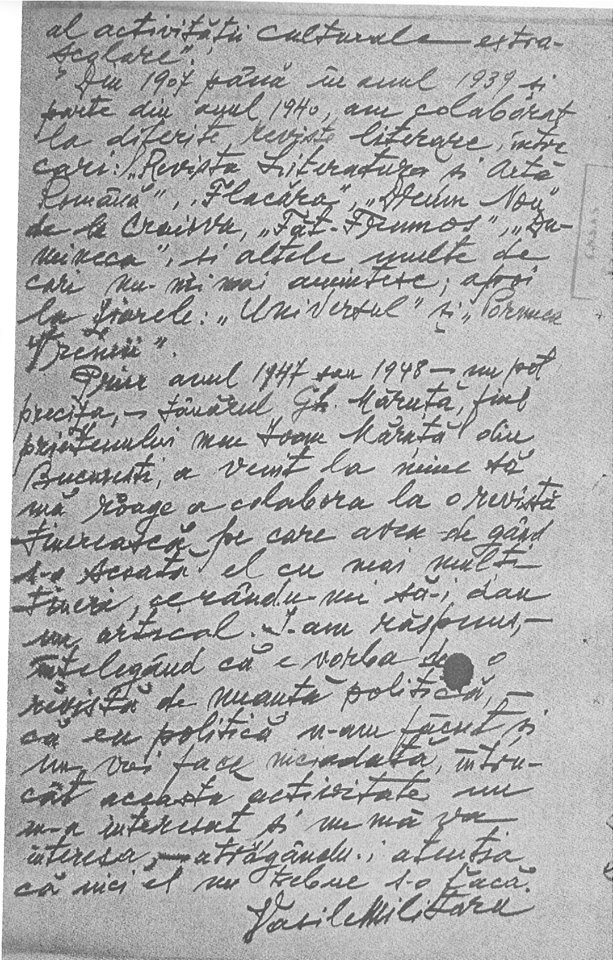 al activității culturale extra-
școlare".
"Din 1907 până în anul 1939 și
parte din anul 1940, am colaborat
la diferite reviste literare, între
cari: „Revista Literatura și Artă
Română", „Flacăra", „Drum Nou"
de la Craiova, „Făt-Frumos", „Du-
mineca", și altele multe de
cari nu-mi mai amintesc; apoi
la ziarele: „Universul" și „Porunca
Vremii".
Prin anul 1947 sau 1948 – nu pot
preciza, – tânărul Gh. Măruță, fiul
prietenului meu Ioan Măruță din
București, a venit la mine să
mă roage a colabora la o revistă
tinerească pe care avea de gând
s-o scoată el cu mai mulți
tineri, cerându-mi să-i dau
un articol. I-am răspuns, –
înțelegând că e vorba de o
revistă de nuanță politică, –
că eu politică n-am făcut și
nu voi face niciodată, întru-
cât această activitate nu
m-a interesat și nu mă va
interesa, – atrăgându-i atenția
că nici el nu trebue s-o facă.
Vasile Militaru